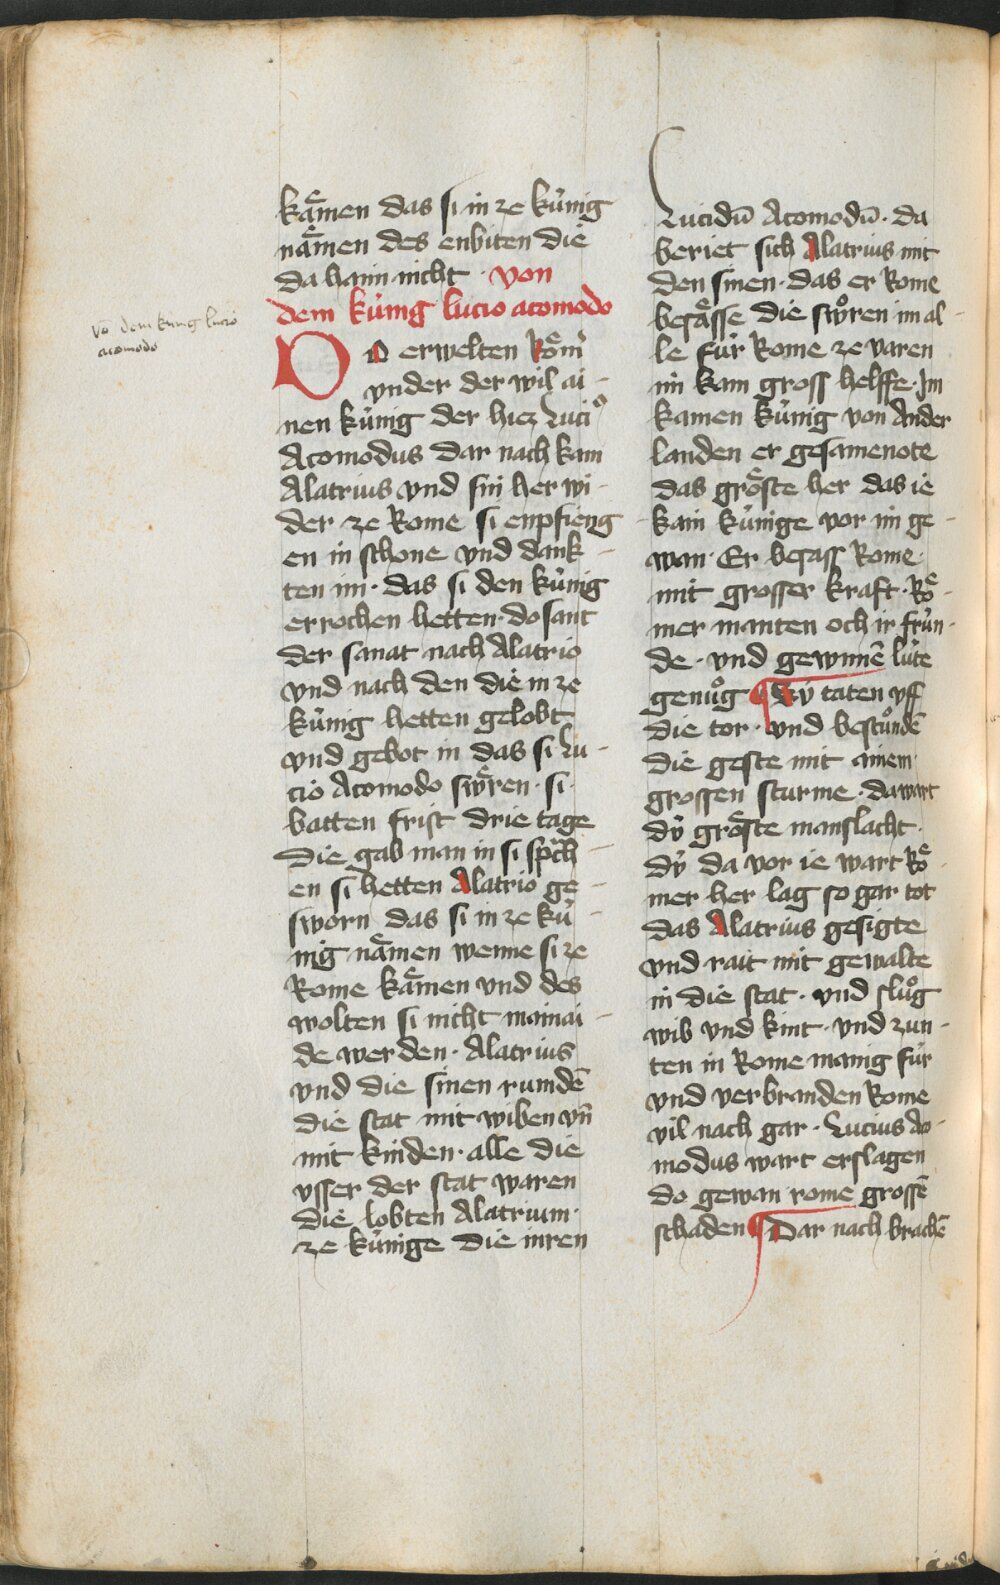 kaͤmen das si in ze kuͤnig
naͤmen des enbiten die
da haim nicht · von
dem kúnig lucio acomodo
vō dem kung lucio
acomodo
DO erwelten Roͤm̄
vnder der wil ai-
nen kúnig der hiez Lucius
Acomodus dar nach kam
Alatrius vnd sin her wi-
der ze Rome si enpfieng
en in schone vnd dank-
ten im · das si den kúnig
errochen hetten · do sant
der sanat nach Alatrio
vnd nach den die in ze
kúnig hetten gelobt
vnd gebot in das si Lu-
cio Acomodo swͤren · si
batten frist drie tage
Die gab man in si spͣch-
en si hetten Alatrio ge-
sworn das si in ze kú-
nig naͤmen wenne si ze
Rome kaͤmen vnd des
wolten si nicht mainai-
de werden · Alatrius
vnd die sinen rumdē
die stat mit wiben vn̄
mit kinden · alle die
vsser der stat waren
die lobten Alatrium
ze kúnige die inren
Lucidū Acomodū · da
beriet sich Alatrius mit
den sinen · das er Rome
besaͤsse die swͦren im al-
le fúr Rome ze varen
im kam gross helffe · Im
kamen kúnig von Ander
landen er gesamenote
das groͤste her das ie
kain kúnige vor im ge-
wan · Er besass Rome
mit grosser kraft · Roͤ-
mer manten och ir frún-
de · vnd gewinnē lúte
genuͦg ¶ Sÿ taten vff
die tor · vnd bestuͦndē
die geste mit ainem
grossen sturme · da wart
dý groͤste manslacht ·
dý da vor ie wart Roͤ-
mer her lag so gar tot
das Alatrius gesigte
vnd rait mit gewalte
in die stat · vnd sluͦg
wib vnd kint · vnd zun-
ten in Rome manig fúr
vnd verbranden Rome
vil nach gar · Lucius Ao-
modus wart erslagen
do gewan rome grossē
schaden ¶ Dar nach brachē